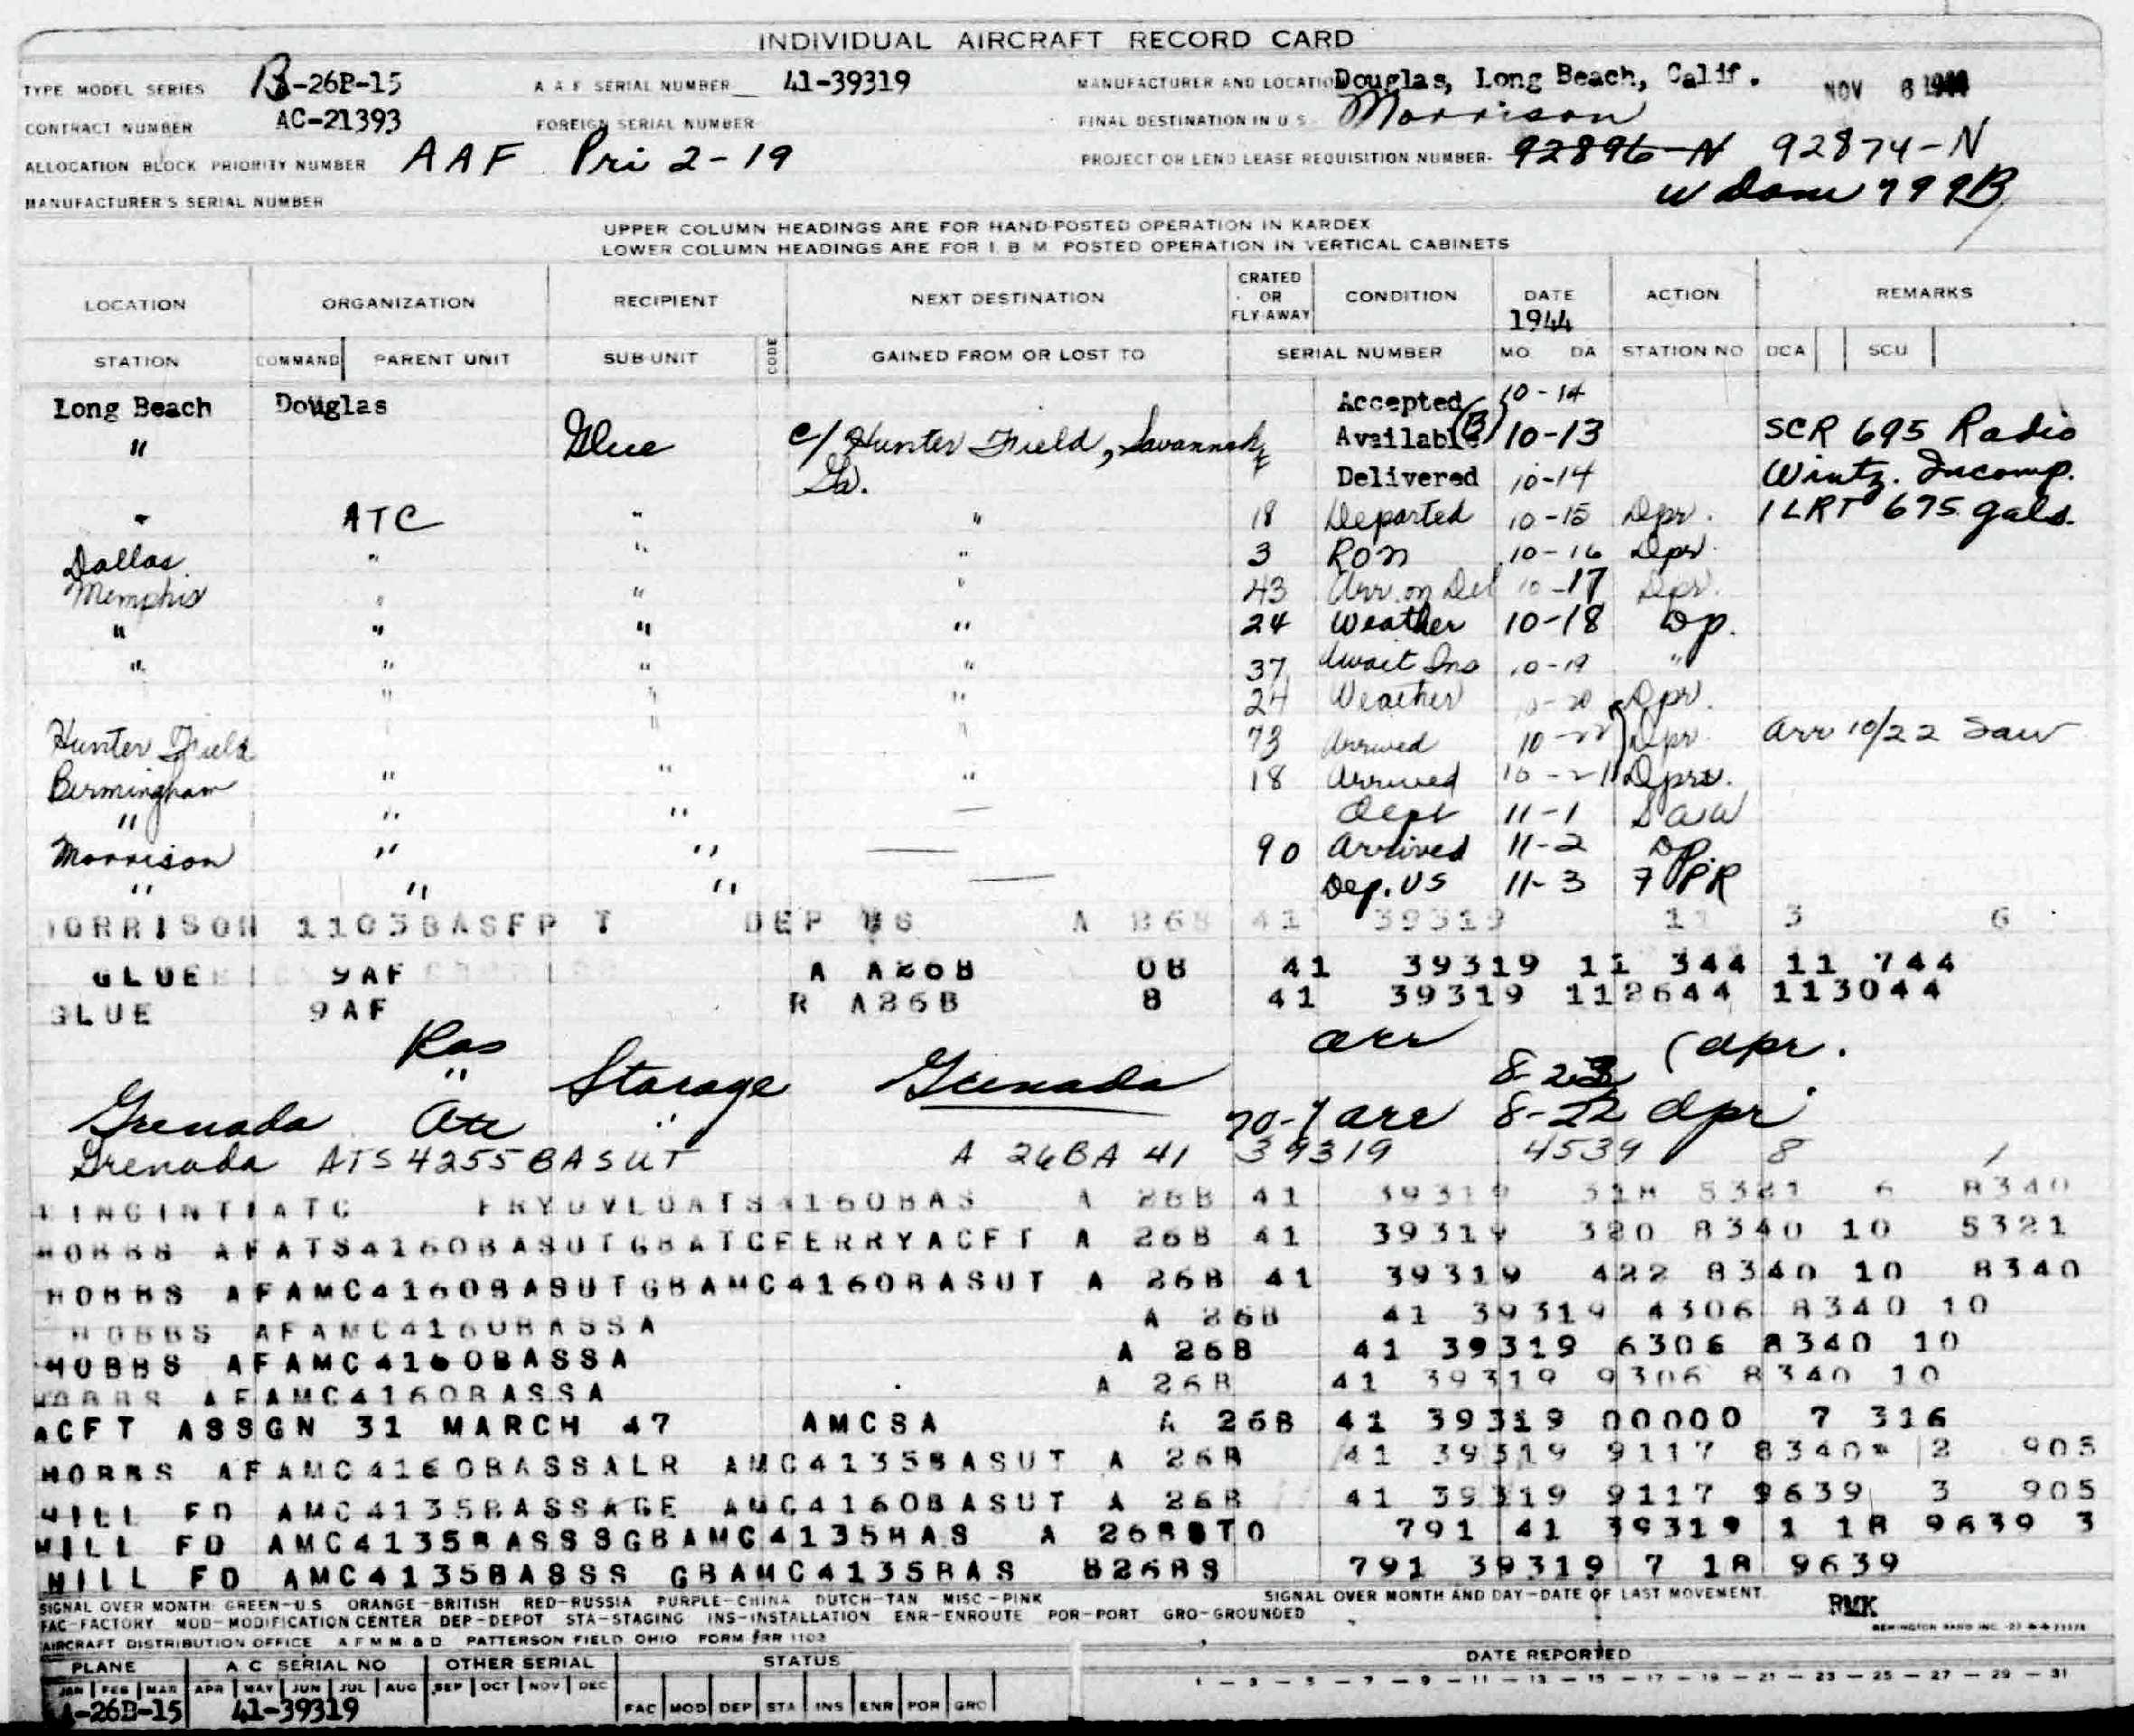 INDIVIDUAL AIRCRAFT RECORD CARD
TYPE MODEL SERIES B-26B-15 A A F SERIAL NUMBER 41-39319 MANUFACTURER AND LOCATION Douglas, Long Beach, Calif. NOV 6 1944
CONTRACT NUMBER AC-21393 FOREIGN SERIAL NUMBER FINAL DESTINATION IN U S Morrison
ALLOCATION BLOCK PRIORITY NUMBER AAF Pri 2-19 PROJECT OR LEND LEASE REQUISITION NUMBER- 92896-N 92874-N
MANUFACTURER'S SERIAL NUMBER
UPPER COLUMN HEADINGS ARE FOR HAND-POSTED OPERATION IN KARDEX
LOWER COLUMN HEADINGS ARE FOR I. B M POSTED OPERATION IN VERTICAL CABINETS
LOCATION ORGANIZATION RECIPIENT NEXT DESTINATION CRATED OR FLY-AWAY CONDITION DATE 1944 ACTION REMARKS
STATION COMMAND PARENT UNIT SUB-UNIT CODE GAINED FROM OR LOST TO SERIAL NUMBER MO DA STATION NO DCA SCU
Long Beach Douglas Accepted 10-14
" Glue c/ Hunter Field, Savannah, Available (B) 10-13 SCR 695 Radio
Ga. Delivered 10-14 Wintz. Incomp.
" ATC " " 18 Departed 10-15 Dpr. 1 LRT 675 gals.
Dallas " " " 3 RON 10-16 Dpr.
Memphis " " " 43 Arr. on Del 10-17 Dpr.
" " " " 24 Weather 10-18 Dp.
" " " " 37 Await Ins 10-19 "
" " " 24 Weather 10-20 Dpr.
Hunter Field " " 73 Arrived 10-22 Dpr. Arr 10/22 Saw
Birmingham " " " 18 Arrived 10-21 Dprs.
" " " — Dept 11-1 Saw
Morrison " " — 90 Arrived 11-2 DP
" " " — Dep. US 11-3 7 PPR
MORRISON 1103BASFP T DEP US A B6B 41 39319 11 3 6
GLUE 9AF A A26B 0B 41 39319 11 344 11 744
GLUE 9AF R A26B B 41 39319 112644 113044
arr (dpr.
" Storage Grenada 8-23
Grenada Atc " 70-1 arr 8-22 dpr
Grenada ATS 4255BASUT A 26BA 41 39319 4539 8 1
A 26B 41 39319 318 5321 6 8340
HOBBS AFATS4160BASUTGBATCFERRYACFT A 26B 41 39319 320 8340 10 5321
HOBBS AFAMC4160BASUTGBAMC4160BASUT A 26B 41 39319 422 8340 10 8340
HOBBS AFAMC4160BASSA A 26B 41 39319 4306 8340 10
HOBBS AFAMC4160BASSA A 26B 41 39319 6306 8340 10
HOBBS AFAMC4160BASSA A 26B 41 39319 9306 8340 10
ACFT ASSGN 31 MARCH 47 AMCSA A 26B 41 39319 00000 7 316
HOBBS AFAMC4160BASSALR AMC4135BASUT A 26B 41 39319 9117 8340* 2 905
HILL FD AMC4135BASSAGE AMC4160BASUT A 26B 41 39319 9117 9639 3 905
HILL FD AMC4135BASSSGBAMC4135BAS A 26BSTO 791 41 39319 1 18 9639 3
HILL FD AMC4135BASSS GBAMC4135BAS B26BS 791 39319 7 18 9639
SIGNAL OVER MONTH: GREEN-U.S ORANGE-BRITISH RED-RUSSIA PURPLE-CHINA DUTCH-TAN MISC-PINK SIGNAL OVER MONTH AND DAY-DATE OF LAST MOVEMENT.
FAC-FACTORY MOD-MODIFICATION CENTER DEP-DEPOT STA-STAGING INS-INSTALLATION ENR-ENROUTE POR-PORT GRO-GROUNDED RMK
AIRCRAFT DISTRIBUTION OFFICE A F M M. & D. PATTERSON FIELD OHIO FORM #RR 1103
PLANE A C SERIAL NO OTHER SERIAL STATUS DATE REPORTED
JAN FEB MAR APR MAY JUN JUL AUG SEP OCT NOV DEC 1 - 3 - 5 - 7 - 9 - 11 - 13 - 15 - 17 - 19 - 21 - 23 - 25 - 27 - 29 - 31
A-26B-15 41-39319 FAC MOD DEP STA INS ENR POR GRO